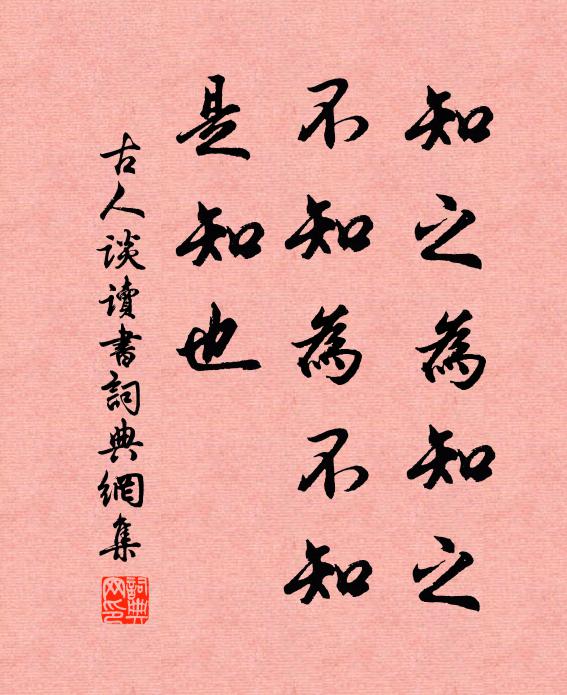 知之為知之
不知為不知
是知也
古人談讀書詞典網集
詞典網印